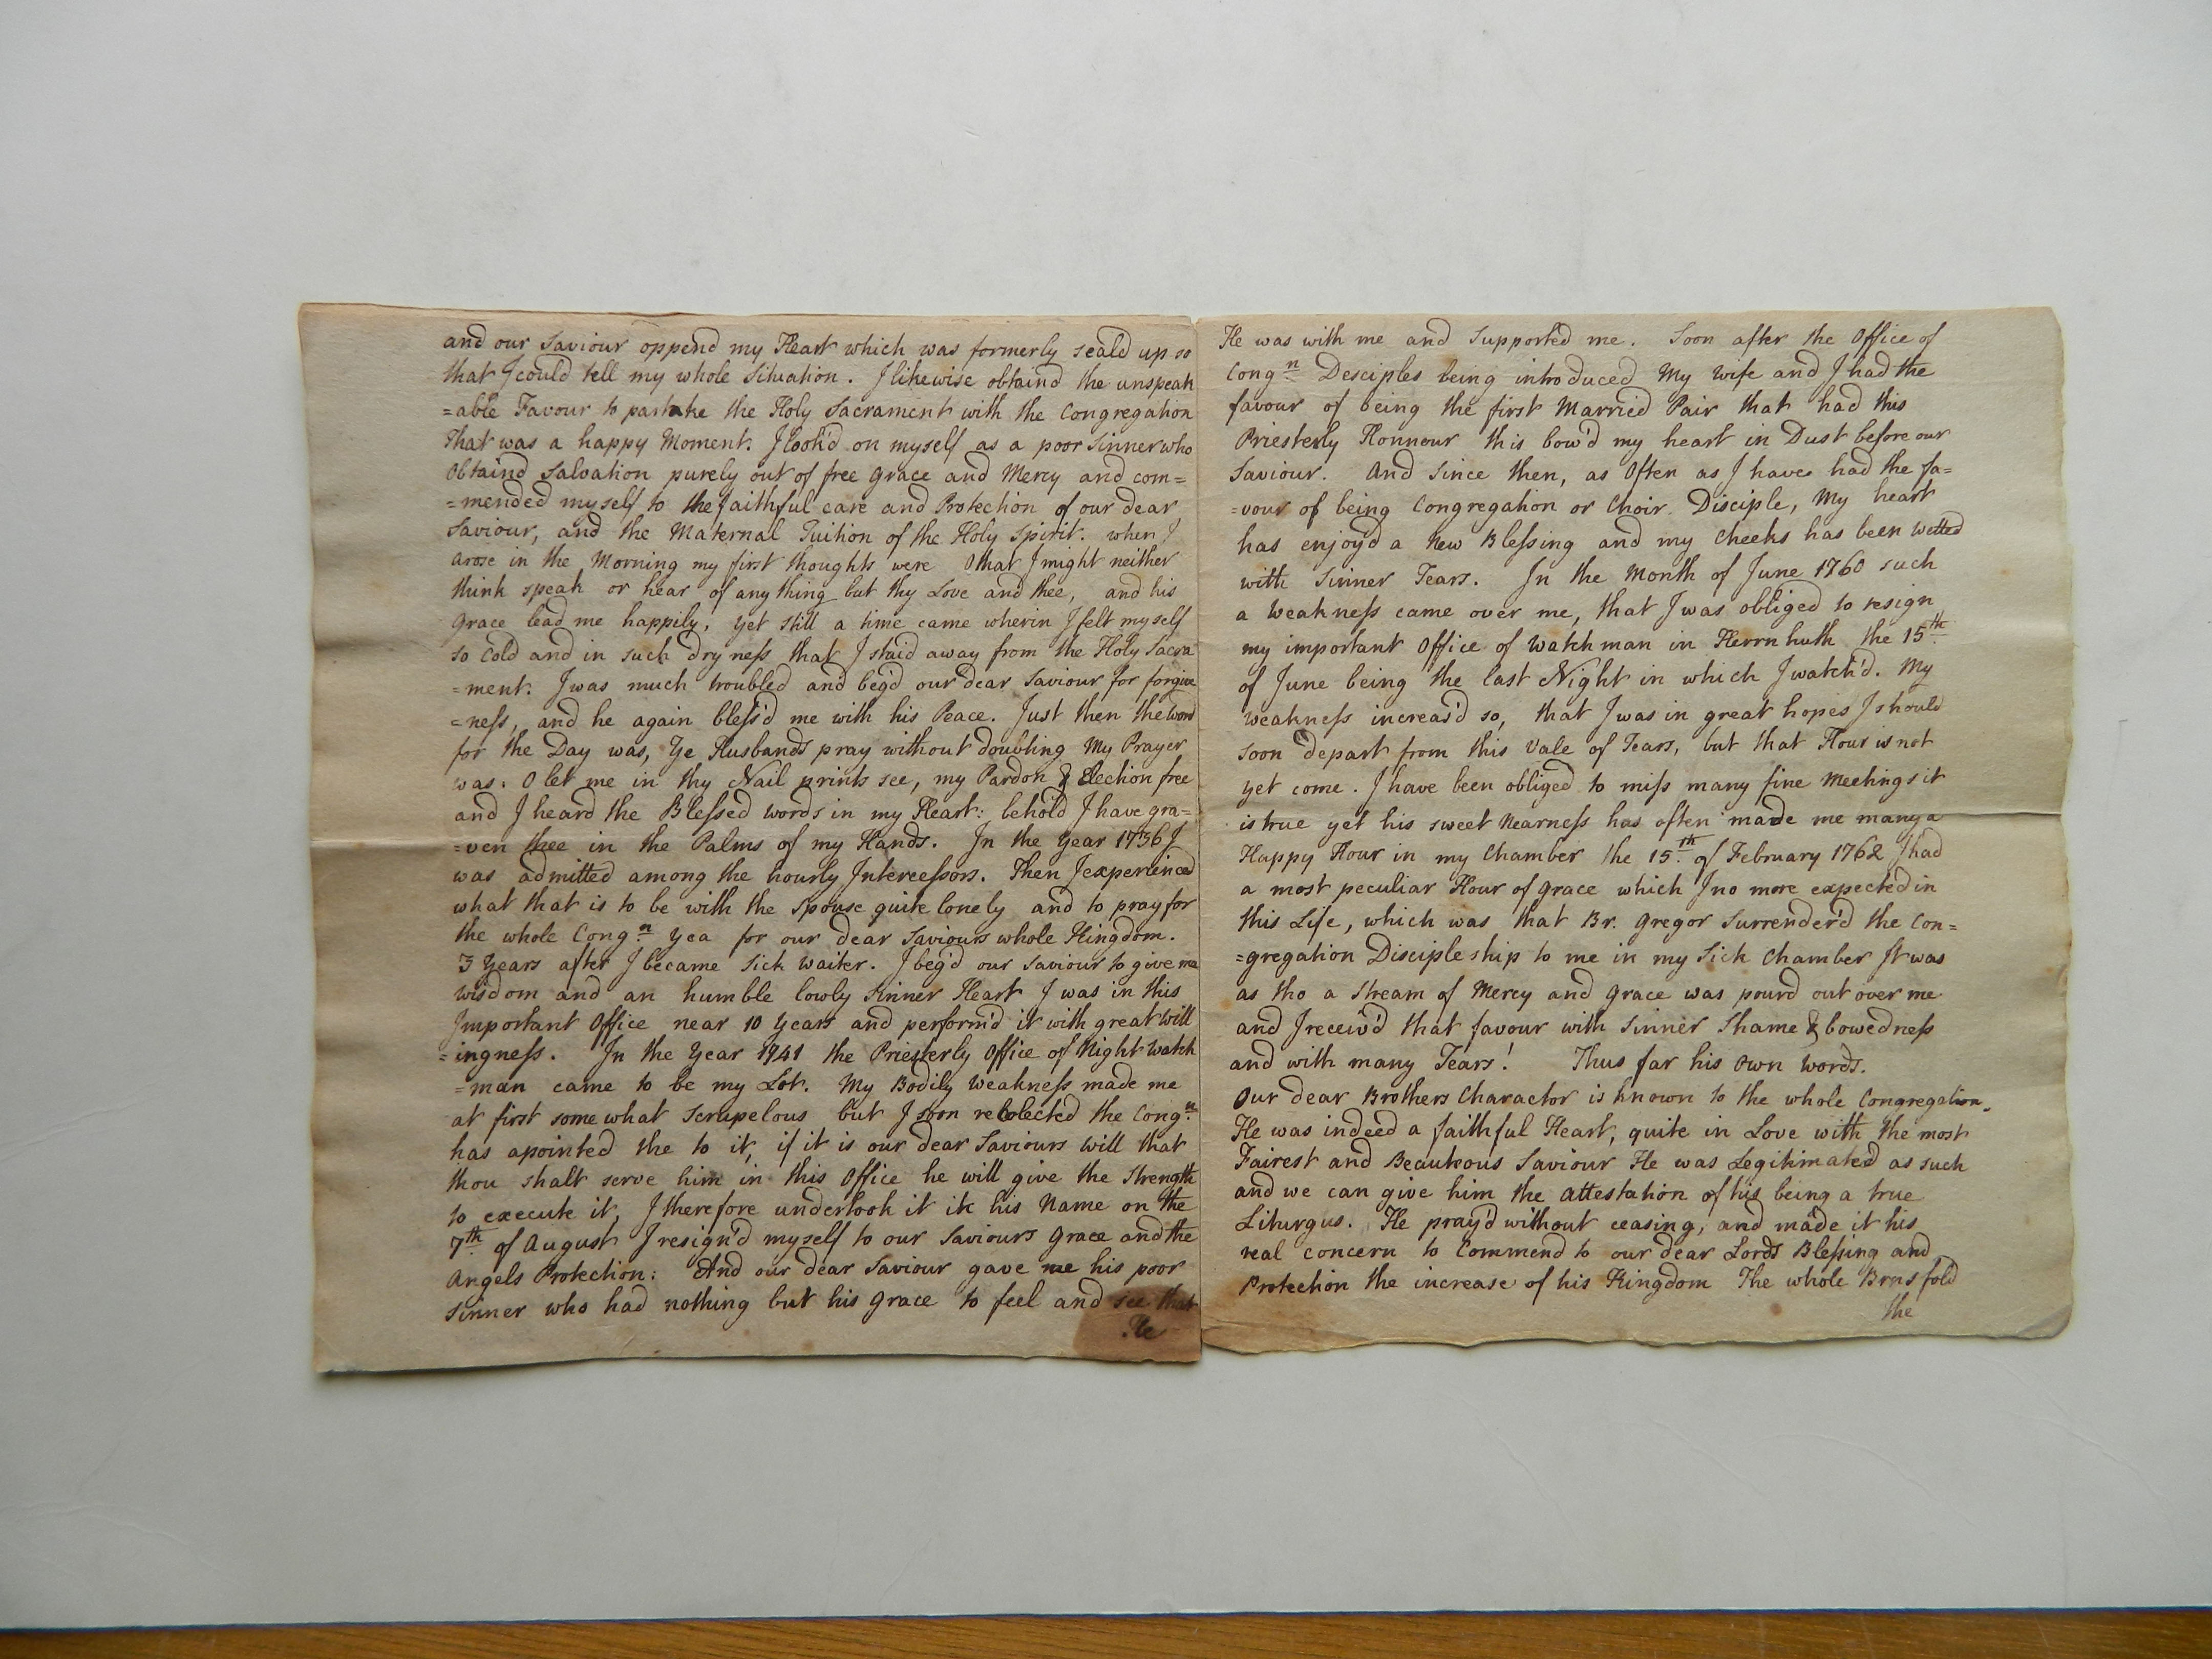 and our Saviour oppend my Heart which was formerly seald up so
that I could tell my whole Situation. I likewise obtaind the unspeak
=able Favour to partake the Holy Sacrament with the Congregation
That was a happy Moment. I look'd on myself as a poor Sinner who
Obtaind Salvation purely out of free Grace and Mercy and com=
=mended myself to the faithful care and Protection of our dear
Saviour, and the Maternal Tuition of the Holy Spirit. when I
arose in the Morning my first thoughts were O that I might neither
think speak or hear of any thing but thy Love and thee, and his
Grace lead me happily, yet still a time came wherin I felt myself
so Cold and in such dryness that I staid away from the Holy Sacra
=ment. I was much troubled and beg'd our dear Saviour for forgive
=ness, and he again bless'd me with his Peace. Just then the Word
for the Day was, Ye Husbands pray without doubting My Prayer
was: O let me in thy Nail prints see, my Pardon & Election free
and I heard the Blessed words in my Heart: behold I have gra=
=ven thee in the Palms of my Hands. In the Year 1736 I
was admitted among the hourly Intercessors. Then I experienced
what that is to be with the Spouse quite lonely and to pray for
the whole Congn. yea for our dear Saviours whole Kingdom.
3 Years after I became Sick Waiter. I beg'd our Saviour to give me
wisdom and an humble lowly Sinner Heart I was in this
Important Office near 10 Years and perform'd it with great Will
=ingness. In the Year 1741 the Priesterly Office of Night Watch
=man came to be my Lot. My Bodily Weakness made me
at first some what Scrupelous but I soon recolected the Congn.
has apointed the to it, if it is our dear Saviours Will that
thou shalt serve him in this Office he will give the Strength
to execute it, I therefore undertook it in his Name on the
7th. of August I resign'd myself to our Saviours Grace and the
Angels Protection: And our dear Saviour gave me his poor
Sinner who had nothing but his Grace to feel and see that
He
He was with me and Supported me. Soon after the Office of
Congn. Desciples being introduced My Wife and I had the
favour of being the first Married Pair that had this
Priesterly Honnour this bow'd my heart in Dust before our
Saviour. And since then, as Often as I have had the fa=
=vour of being Congregation or Choir Disciple, My heart
has enjoy'd a New Blessing and my Cheeks has been Wetted
with Sinner Tears. In the Month of June 1760 such
a Weakness came over me, that I was obliged to resign
my important Office of Watchman in Herrnhuth the 15th.
of June being the last Night in which I watch'd. My
Weakness increas'd so, that I was in great hopes I should
soon depart from this Vale of Tears, but that Hour is not
yet come. I have been obliged to miss many fine Meetings it
is true yet his sweet Nearness has often made me many a
Happy Hour in my Chamber the 15th. of February 1762 I had
a most peculiar Hour of Grace which I no more expected in
this Life, which was that Br. Gregor Surrender'd the Con=
=gregation Discipleship to me in my Sick Chamber It was
as tho a Stream of Mercy and Grace was pourd out over me
and I receiv'd that favour with Sinner Shame & bowedness
and with many Tears! Thus far his Own Words.
Our dear Brothers Charactor is known to the whole Congregation.
He was indeed a faithful Heart, quite in Love with the most
Fairest and Beauteous Saviour He was Legitimated as such
and we can give him the Attestation of his being a true
Liturgus. He pray'd without ceasing, and made it his
real concern to Commend to our dear Lords Blessing and
Protection the increase of his Kingdom The whole Brns fold
the